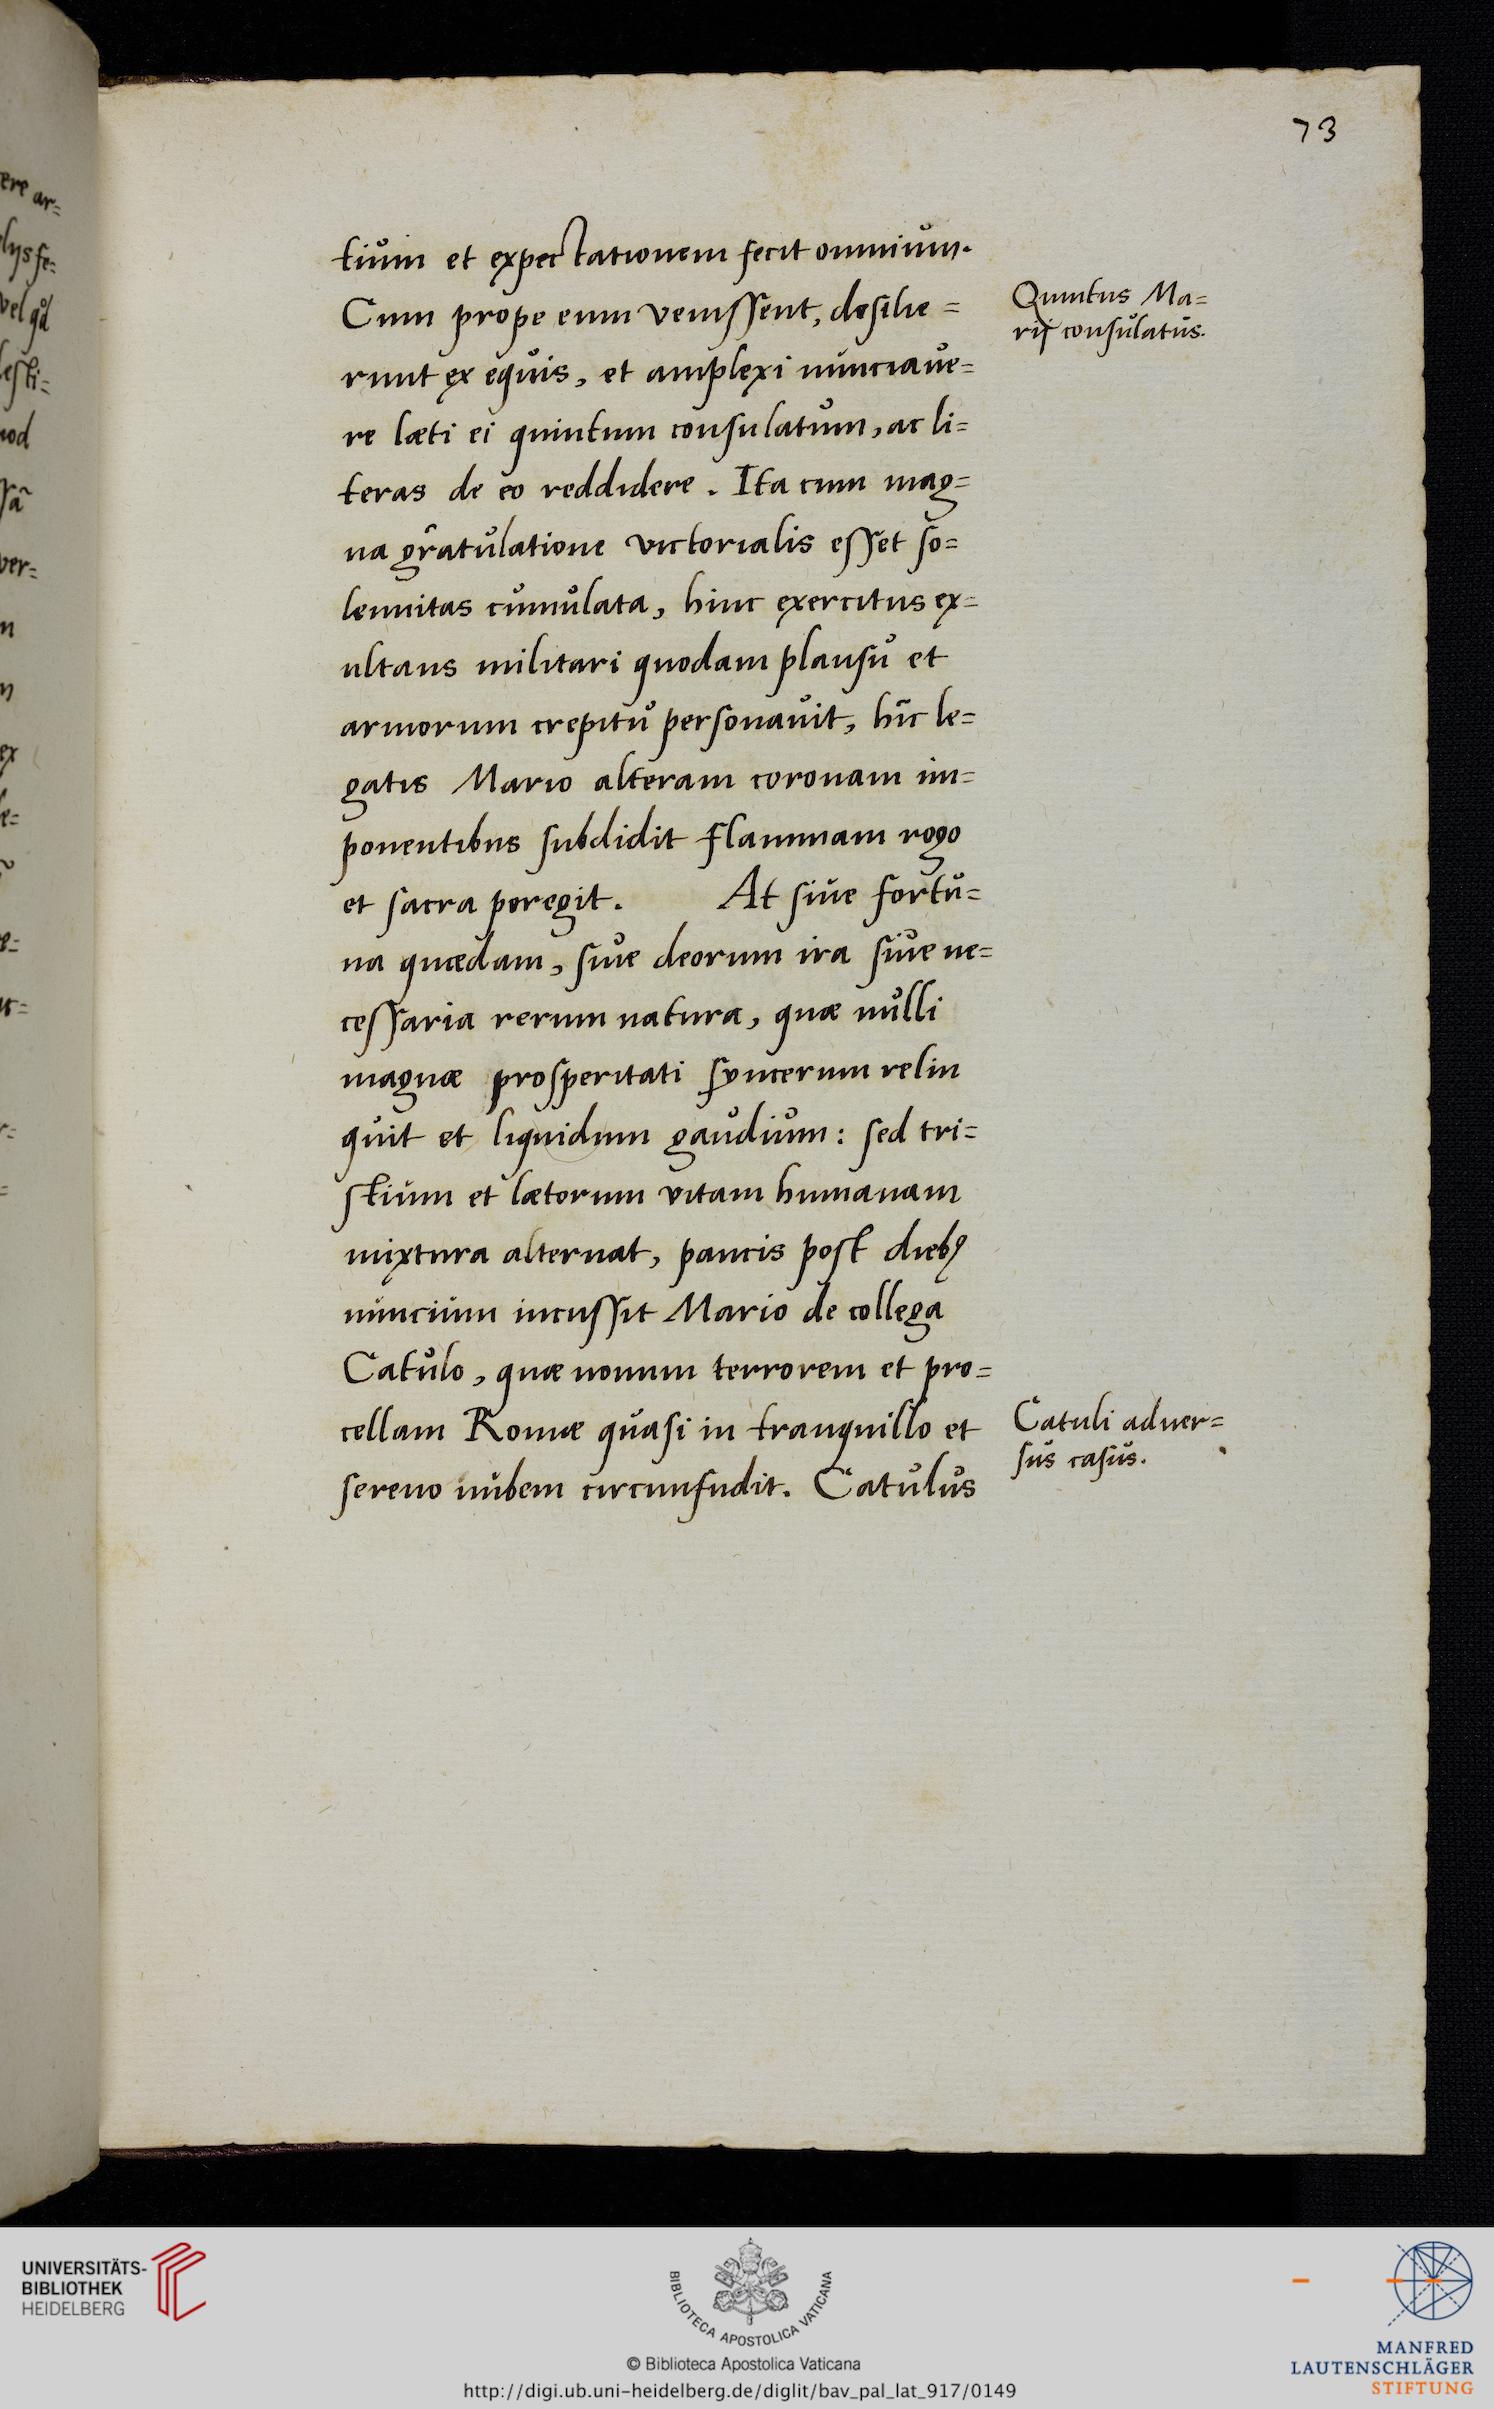 73
tium et expectationem fecit omnium.
Cum prope eum venissent, desilie=
runt ex equis, et amplexi nunciave=
re læti ei quintum consulatum, ac li=
teras de eo reddidere. Ita cum mag=
na gratulatione victorialis esset so=
lennitas cumulata, hinc exercitus ex=
ultans militari quodam plausu et
armorum crepitu personavit, hīc le=
gatis Mario alteram coronam im=
ponentibus subdidit flammam rogo
et sacra peregit. At sive fortu=
na quædam, sive deorum ira sive ne=
cessaria rerum natura, quæ nulli
magnæ prosperitati syncerum relin
quit et liquidum gaudium: sed tri=
stium et lætorum vitam humanam
mixtura alternat, paucis post dieb9
nuncium incussit Mario de collega
Catulo, quæ nouum terrorem et pro=
cellam Romæ quasi in tranquillo et
sereno nubem circumfudit. Catulus
Quintus Ma=
rij consulatus.
Catuli aduer=
sus casus.
ere ar=
lijs fe=
vel qd
lesti=
uod
ver=
ex
UNIVERSITÄTS-
BIBLIOTHEK
HEIDELBERG
BIBLIOTECA APOSTOLICA VATICANA
© Biblioteca Apostolica Vaticana
http://digi.ub.uni-heidelberg.de/diglit/bav_pal_lat_917/0149
MANFRED
LAUTENSCHLÄGER
STIFTUNG